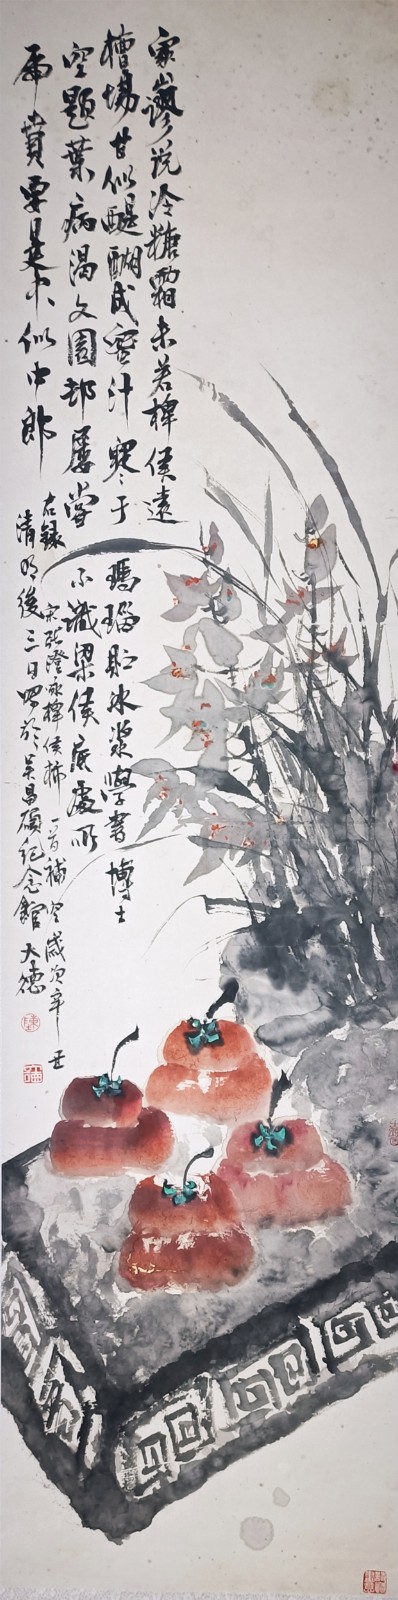 家山謬說冷糖霜未若椑侯遠
擅場甘似醍醐成蜜汁寒于瑪瑙貯冰漿學書博士
空題葉病渴文園却屢嘗不識梁侯底處所
虎賁要是似中郎
右録宋張澄咏椑侯柿一首補空歲次辛丑
清明後三日於吳昌碩紀念館大德